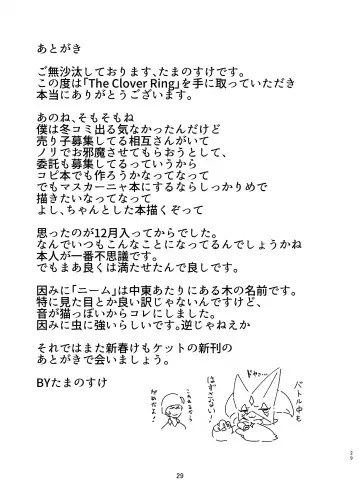 あとがき
ご無沙汰しております、たまのすけです。
この度は「The Clover Ring」を手に取っていただき
本当にありがとうございます。
あのね、そもそもね
僕は冬コミ出る気なかったんだけど
売り子募集してる相互さんがいて
ノリでお邪魔させてもらおうとして、
委託も募集してるっていうから
コピ本でも作ろうかなってなって
でもマスカーニャ本にするならしっかりめで
描きたいなってなって
よし、ちゃんとした本描くぞって
思ったのが12月入ってからでした。
なんでいつもこんなことになってるんでしょうかね
本人が一番不思議です。
でもまあ良くは満たせたんで良しです。
因みに「ニーム」は中東あたりにある木の名前です。
特に見た目とか良い訳じゃないんですけど、
音が猫っぽいからコレにしました。
因みに虫に強いらしいです。逆じゃねえか
それではまた新春けもケットの新刊の
あとがきで会いましょう。
BYたまのすけ
バトル中も
はずさない!
ドヤ…
だよ!
29
29